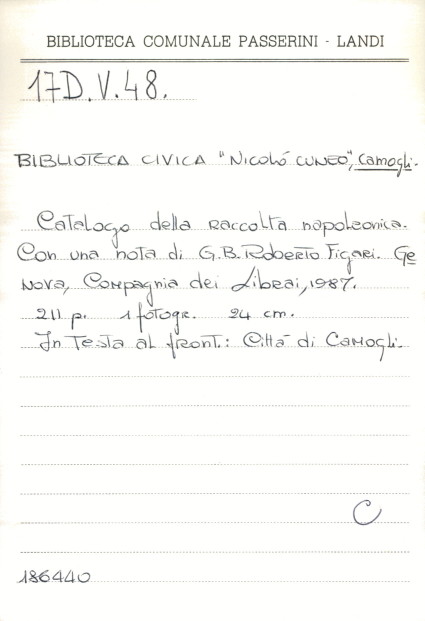 BIBLIOTECA COMUNALE PASSERINI - LANDI
17D.V.48.
BIBLIOTECA CIVICA "NICOLÓ CUNEO", Camogli.
Catalogo della raccolta napoleonica.
Con una nota di G.B. Roberto Figari. Ge
nova, Compagnia dei Librai, 1987.
211 p. 1 fotogr. 24 cm.
In testa al front.: Città di Camogli.
C
186440